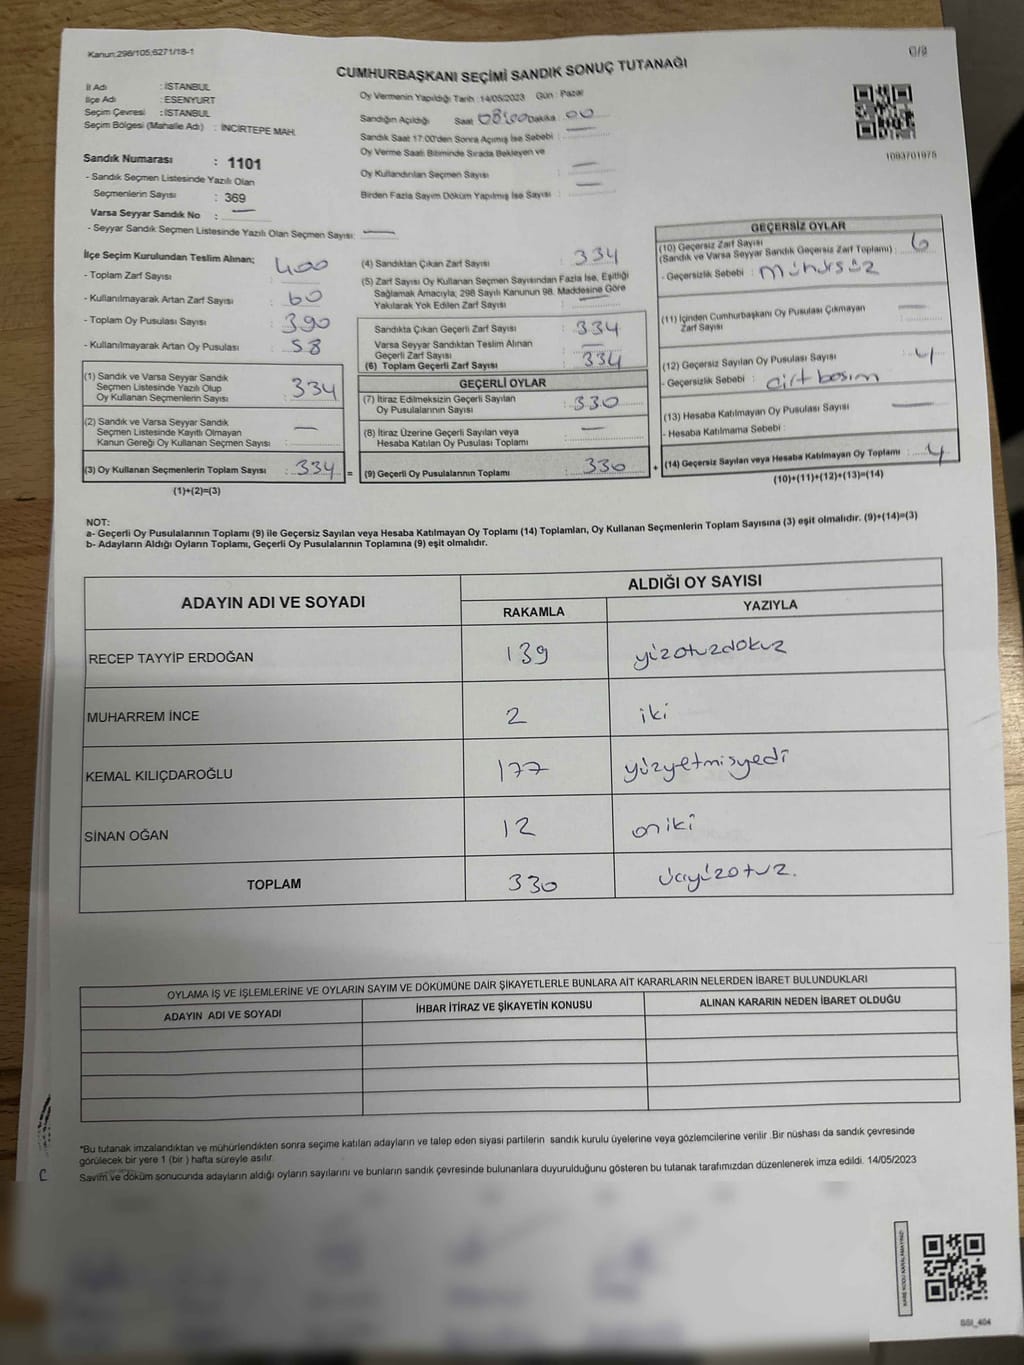 Kanun:298/105;6271/18-1
CUMHURBAŞKANI SEÇİMİ SANDIK SONUÇ TUTANAĞI
İl Adı : İSTANBUL
İlçe Adı : ESENYURT
Seçim Çevresi : İSTANBUL
Seçim Bölgesi (Mahalle Adı) : İNCİRTEPE MAH.
Oy Vermenin Yapıldığı Tarih :14/05/2023 Gün : Pazar
Sandığın Açıldığı Saat 08:00 Dakika : 00
Sandık Saat 17:00'den Sonra Açımış İse Sebebi : —
Oy Verme Saati Bitiminde Sırada Bekleyen ve
Oy Kullandırılan Seçmen Sayısı : —
Birden Fazla Sayım Döküm Yapılmış İse Sayısı : —
1093701975
Sandık Numarası : 1101
- Sandık Seçmen Listesinde Yazılı Olan
Seçmenlerin Sayısı : 369
Varsa Seyyar Sandık No : —
- Seyyar Sandık Seçmen Listesinde Yazılı Olan Seçmen Sayısı: —
İlçe Seçim Kurulundan Teslim Alınan;
- Toplam Zarf Sayısı : 400
- Kullanılmayarak Artan Zarf Sayısı : 60
- Toplam Oy Pusulası Sayısı : 390
- Kullanılmayarak Artan Oy Pusulası : 58
(1) Sandık ve Varsa Seyyar Sandık
Seçmen Listesinde Yazılı Olup
Oy Kullanan Seçmenlerin Sayısı : 334
(2) Sandık ve Varsa Seyyar Sandık
Seçmen Listesinde Kayıtlı Olmayan
Kanun Gereği Oy Kullanan Seçmen Sayısı : —
(3) Oy Kullanan Seçmenlerin Toplam Sayısı : 334 =
(1)+(2)=(3)
(4) Sandıktan Çıkan Zarf Sayısı : 334
(5) Zarf Sayısı Oy Kullanan Seçmen Sayısından Fazla İse, Eşitliği
Sağlamak Amacıyla; 298 Sayılı Kanunun 98. Maddesine Göre
Yakılarak Yok Edilen Zarf Sayısı : —
Sandıkta Çıkan Geçerli Zarf Sayısı : 334
Varsa Seyyar Sandıktan Teslim Alınan
Geçerli Zarf Sayısı : —
(6) Toplam Geçerli Zarf Sayısı : 334
GEÇERLİ OYLAR
(7) İtiraz Edilmeksizin Geçerli Sayılan
Oy Pusulalarının Sayısı : 330
(8) İtiraz Üzerine Geçerli Sayılan veya
Hesaba Katılan Oy Pusulası Toplamı : —
(9) Geçerli Oy Pusulalarının Toplamı : 330 +
GEÇERSİZ OYLAR
(10) Geçersiz Zarf Sayısı
(Sandık ve Varsa Seyyar Sandık Geçersiz Zarf Toplamı) : 6
- Geçersizlik Sebebi : mühürsüz
(11) İçinden Cumhurbaşkanı Oy Pusulası Çıkmayan
Zarf Sayısı : —
(12) Geçersiz Sayılan Oy Pusulası Sayısı : 4
- Geçersizlik Sebebi : çift basım
(13) Hesaba Katılmayan Oy Pusulası Sayısı : —
- Hesaba Katılmama Sebebi :
(14) Geçersiz Sayılan veya Hesaba Katılmayan Oy Toplamı : 4
(10)+(11)+(12)+(13)=(14)
NOT:
a- Geçerli Oy Pusulalarının Toplamı (9) ile Geçersiz Sayılan veya Hesaba Katılmayan Oy Toplamı (14) Toplamları, Oy Kullanan Seçmenlerin Toplam Sayısına (3) eşit olmalıdır. (9)+(14)=(3)
b- Adayların Aldığı Oyların Toplamı, Geçerli Oy Pusulalarının Toplamına (9) eşit olmalıdır.
ADAYIN ADI VE SOYADI
ALDIĞI OY SAYISI
RAKAMLA YAZIYLA
RECEP TAYYİP ERDOĞAN 139 yüzotuzdokuz
MUHARREM İNCE 2 iki
KEMAL KILIÇDAROĞLU 177 yüzyetmişyedi
SİNAN OĞAN 12 oniki
TOPLAM 330 üçyüzotuz.
OYLAMA İŞ VE İŞLEMLERİNE VE OYLARIN SAYIM VE DÖKÜMÜNE DAİR ŞİKAYETLERLE BUNLARA AİT KARARLARIN NELERDEN İBARET BULUNDUKLARI
ADAYIN ADI VE SOYADI İHBAR İTİRAZ VE ŞİKAYETİN KONUSU ALINAN KARARIN NEDEN İBARET OLDUĞU
*Bu tutanak imzalandıktan ve mühürlendikten sonra seçime katılan adayların ve talep eden siyasi partilerin sandık kurulu üyelerine veya gözlemcilerine verilir .Bir nüshası da sandık çevresinde
görülecek bir yere 1 (bir ) hafta süreyle asılır.
Sayım ve döküm sonucunda adayların aldığı oyların sayılarını ve bunların sandık çevresinde bulunanlara duyurulduğunu gösteren bu tutanak tarafımızdan düzenlenerek imza edildi. 14/05/2023
KARE KODU KARALAMAYINIZ!
SSI_404